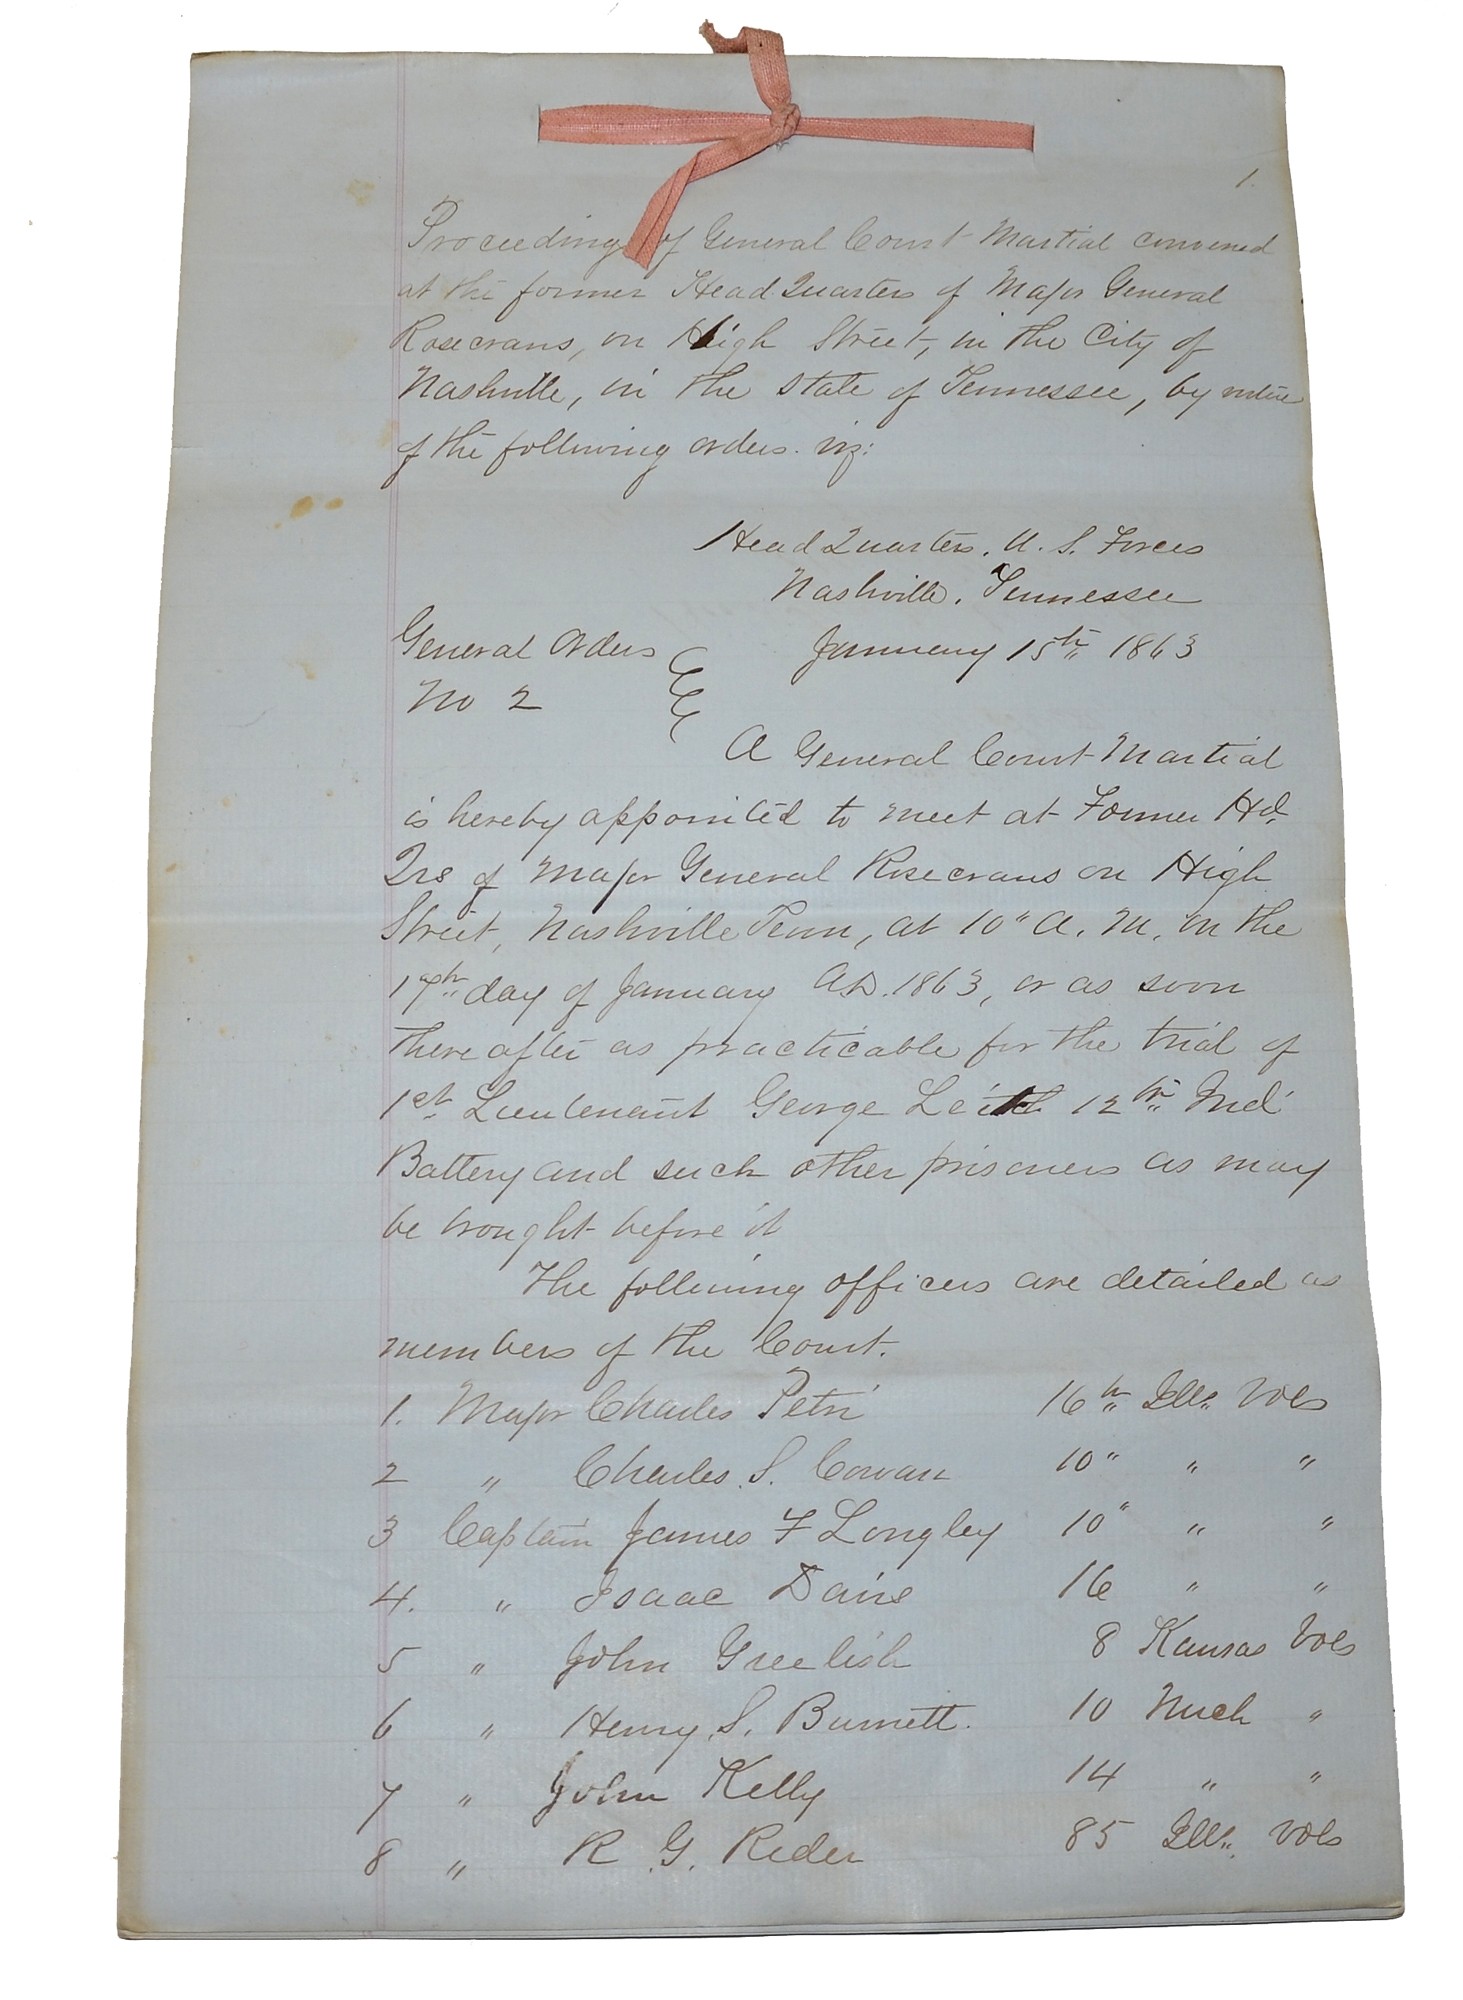 1.
Proceedings of General Court Martial convened
at the former Head Quarters of Major General
Rosecrans, on High Street, in the City of
Nashville, in the State of Tennessee, by virtue
of the following orders. viz:
Head Quarters. U. S. Forces
Nashville, Tennessee
January 15th 1863
General Orders
No 2
A General Court Martial
is hereby appointed to meet at Former Hd.
Qrs of Major General Rosecrans on High
Street, Nashville Tenn, at 10" A. M. on the
17th day of January AD. 1863, or as soon
thereafter as practicable for the trial of
1st Lieutenant George Leith 12th Ind
Battery and such other prisoners as may
be brought before it
The following officers are detailed as
members of the Court.
1. Major Charles Petri 16th Ills. Vols
2 " Charles S. Cowan 10" " "
3 Captain James F Longley 10" " "
4. " Isaac 16 " "
5 " John Greelish 8 Kansas Vols
6 " Henry S. Burnett. 10 Mich "
7 " John Kelly 14 " "
8 " R G. Rider 85 Ills. Vols